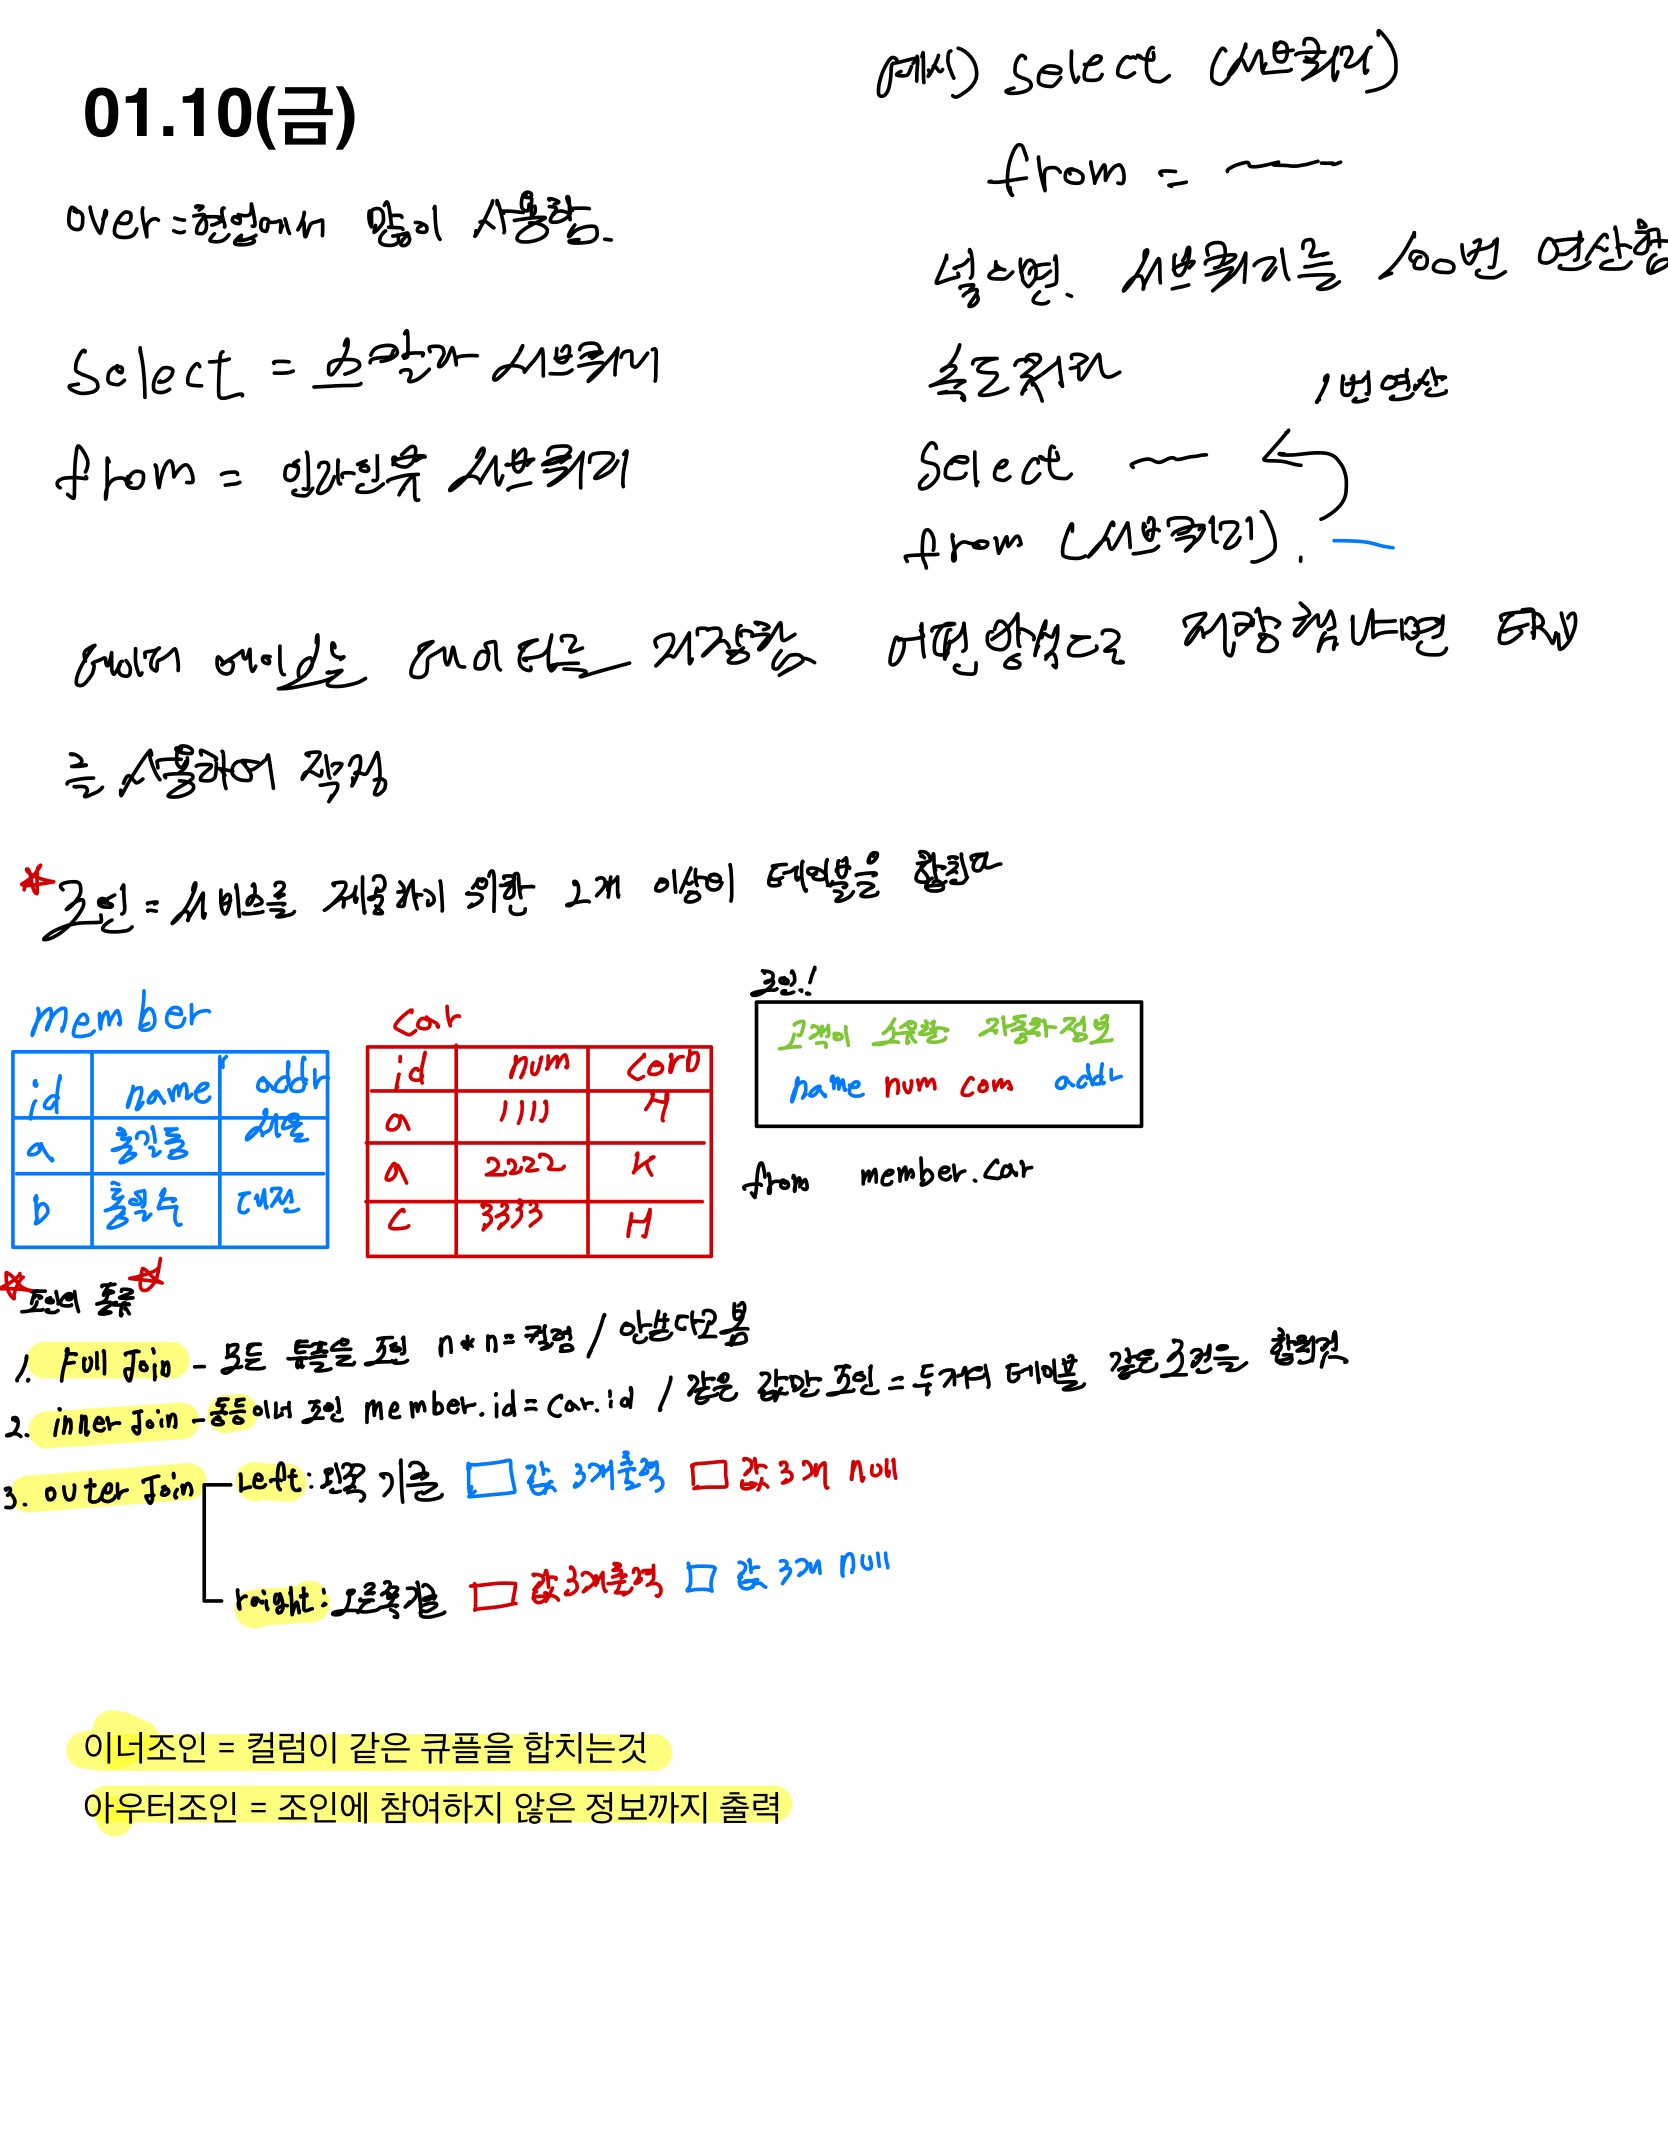 01.10(금)
over = 현업에서 많이 사용함.
Select = 스칼라 서브쿼리
from = 인라인뷰 서브쿼리
예시) Select (서브쿼리)
from = ~
널으면. 서브쿼리를 100번 연산함
속도
1번 연산
Select ~
from (서브쿼리).
데이터 베이스는 데이터를 저장함 어떤 방식으로 저장 하냐면 ERD
를 사용하여 작성
조인 = 서비스를 제공하기 위한 2개 이상의 테이블을 합친다
member
id name addr
a 홍길동 서울
b 홍길수 대전
car
id num com
a 1111 H
a 2222 K
c 3333 H
조인!
고객이 소유한 자동차 정보
name num com addr
from member.car
조인의 종류
1. Full Join - 모든 튜플을 조인 n*n=컬럼 / 안쓴다고봄
2. inner Join - 동등이너 조인 member.id = car.id / 같은 값만 조인 = 두개의 테이블 같은조건을 합친것
3. outer Join
Left: 왼쪽 기준 값 3개출력 값 3개 null
raight: 오른쪽기준 값3개출력 값 3개 null
이너조인 = 컬럼이 같은 큐플을 합치는것
아우터조인 = 조인에 참여하지 않은 정보까지 출력